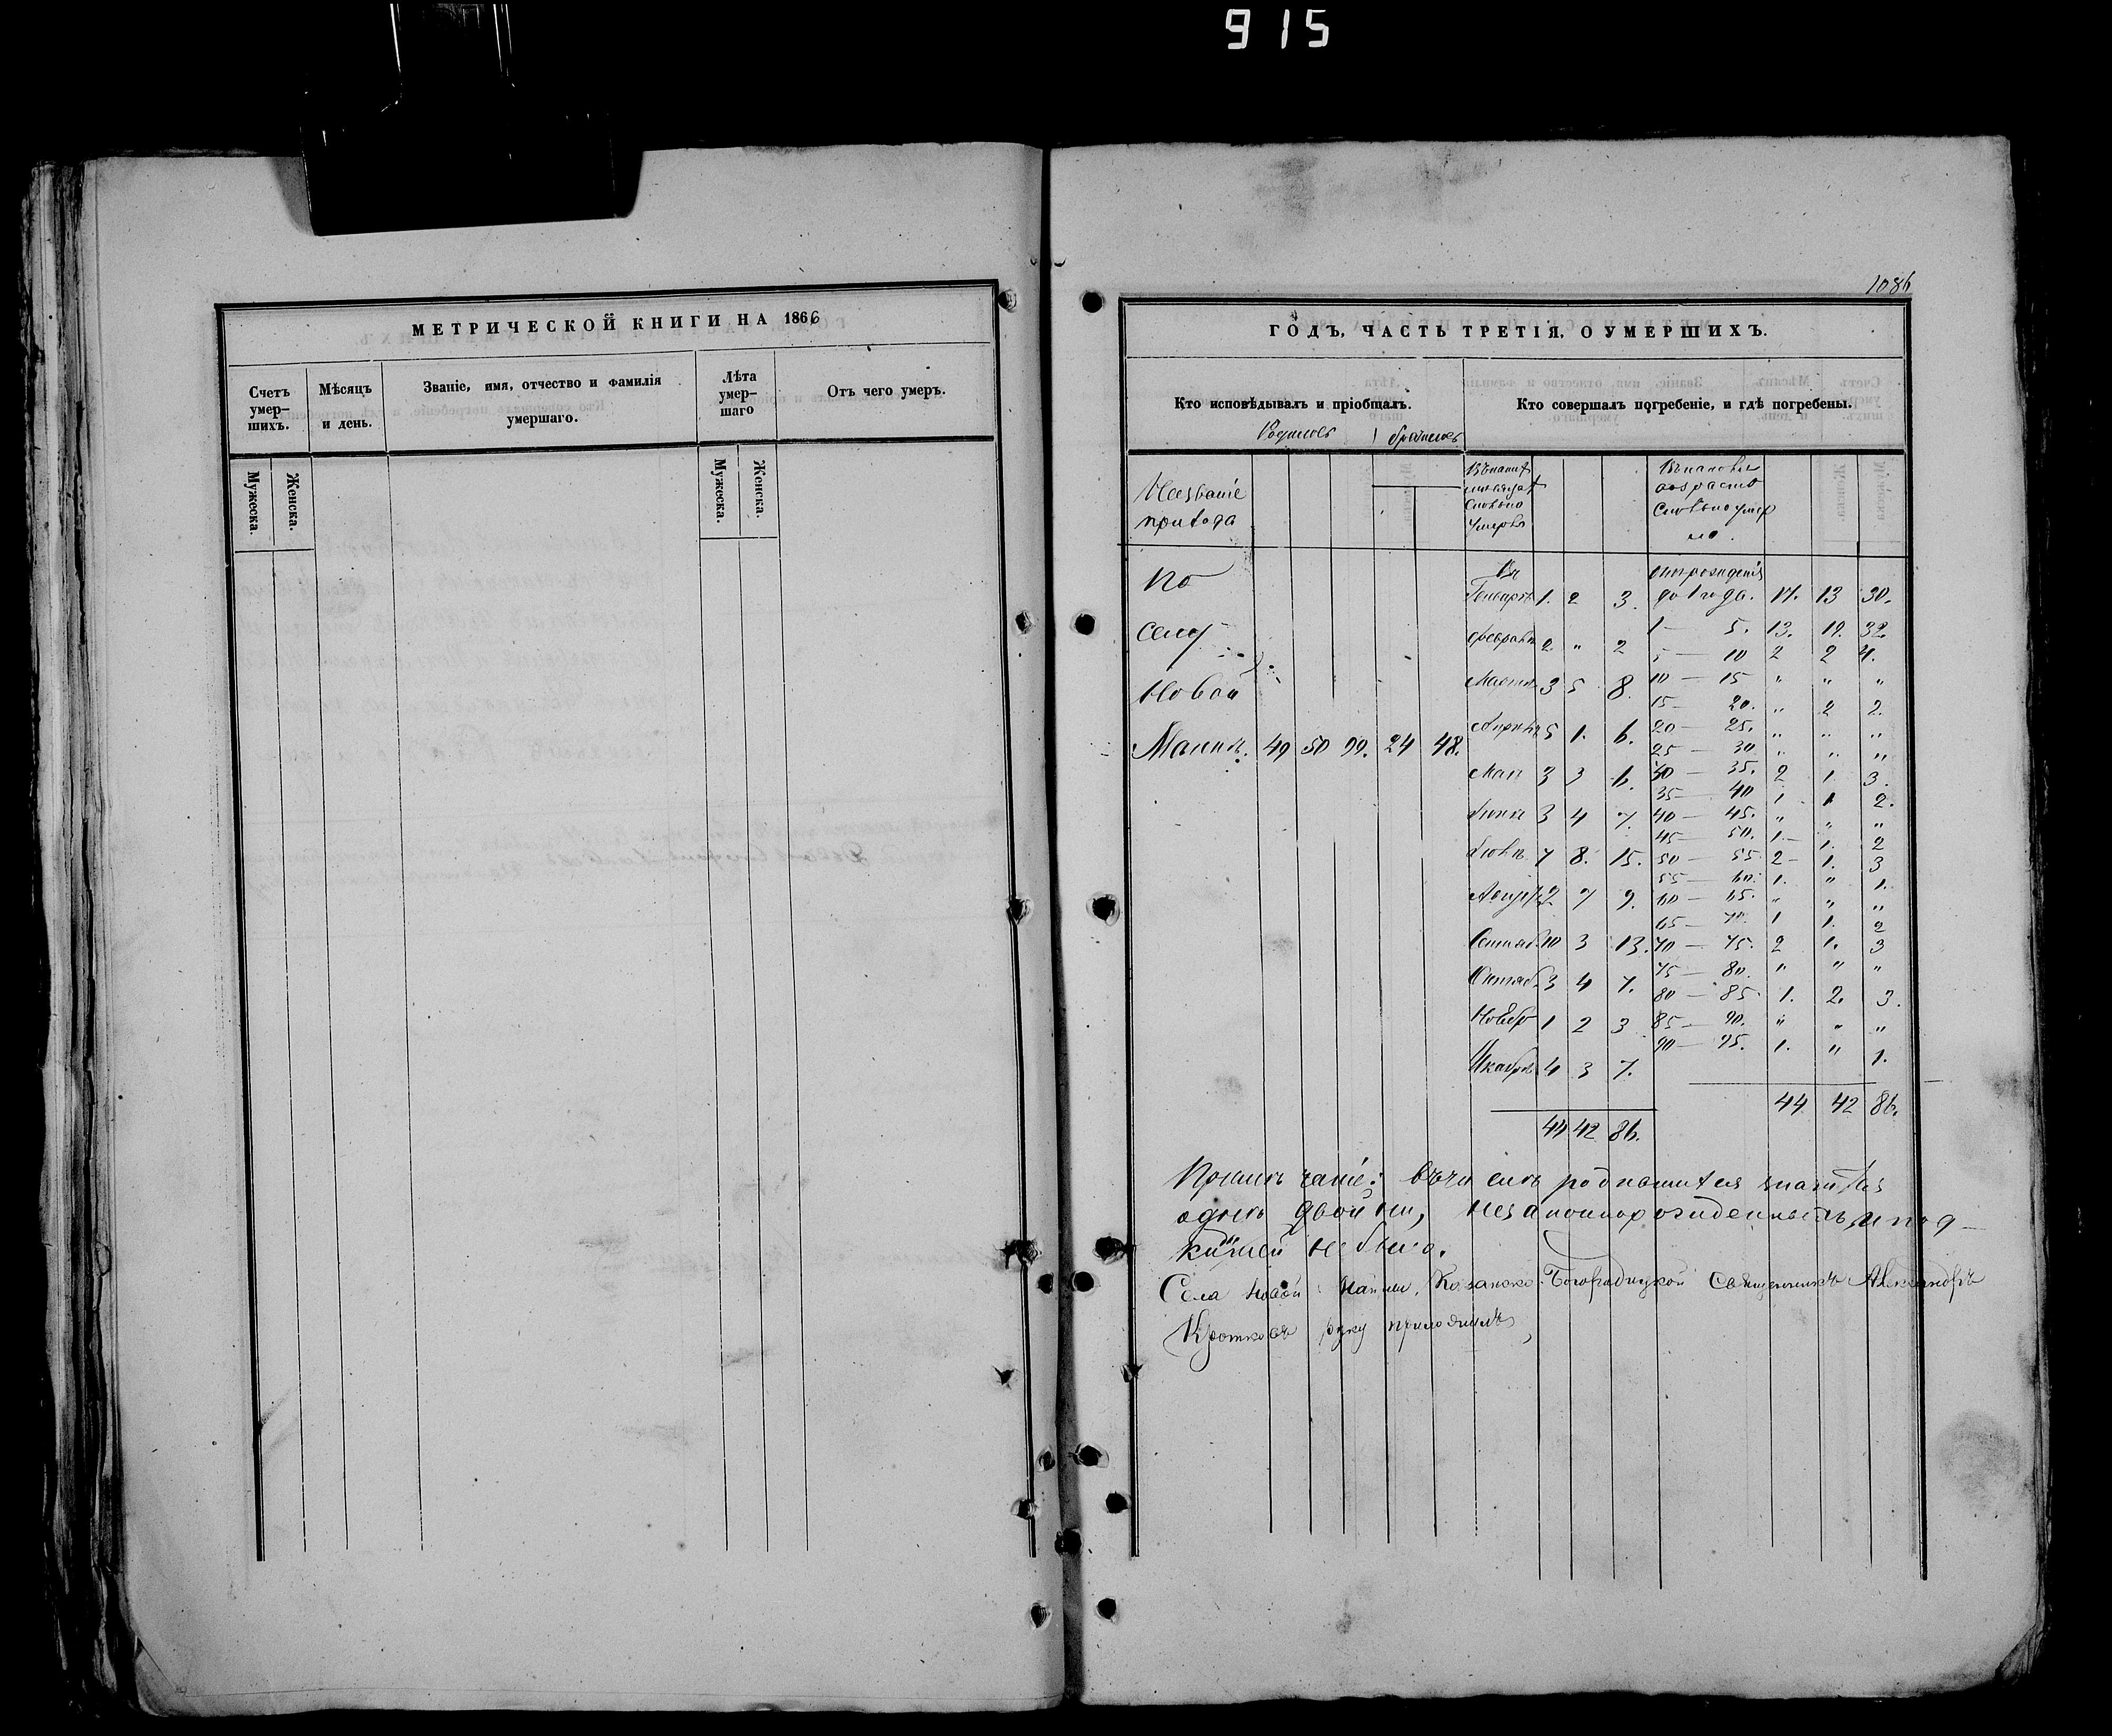 915
МЕТРИЧЕСКОЙ КНИГИ НА 1866
Счетъ умер-шихъ.
Мѣсяцъ и день.
Званіе, имя, отчество и фамилія умершаго.
Лѣта умер-шаго
Отъ чего умеръ.
Мужеска.
Женска.
Мужеска.
Женска.
1086
ГОДЪ, ЧАСТЬ ТРЕТІЯ, О УМЕРШИХЪ.
Кто исповѣдывалъ и пріобщалъ.
Кто совершалъ погребеніе, и гдѣ погребены.
Названіе
прихода
возраста
По
селу
Новой
Маинѣ. 49 50 99. 24 48.
Въ
Генварѣ 1. 2 3.
Февралѣ 2 " 2
Мартѣ 3 5 8.
Апрѣлѣ 5 1. 6.
Маѣ 3 3 6.
Іюнѣ 3 4 7.
Іюлѣ 7 8. 15.
Август 2 7 9.
Сентяб. 10 3 13.
Октяб. 3 4 7.
Ноябр 1 2 3
Декабрѣ 4 3 7.
44 42 86.
отъ рожденія
до 1 года. 17. 13 30.
1 — 5. 13. 19. 32.
5 — 10 2 2 4.
10 — 15 " " "
15 — 20. " 2 2.
20 — 25. " " "
25 — 30 " " "
30 — 35. 2 1 3.
35 — 40 1 1 2.
40 — 45. " " "
45 — 50. 1. 1. 2
50 — 55 2 1. 3
55 — 60. 1. " 1.
60 — 65. " " "
65 — 70. 1 1. 2
70 — 75. 2 1. 3
75 — 80. " " "
80 — 85 1. 2. 3.
85 — 90. " " "
90 — 95. 1. " 1.
44 42 86.
Примѣчаніе: въ числѣ родившихся
однѣ двойни, незаконнорожденныхъ и под-
кидышей не было.
Села Новой Маины, Казанско-Богородицкой Священникъ Александръ
Кротковъ руку приложилъ